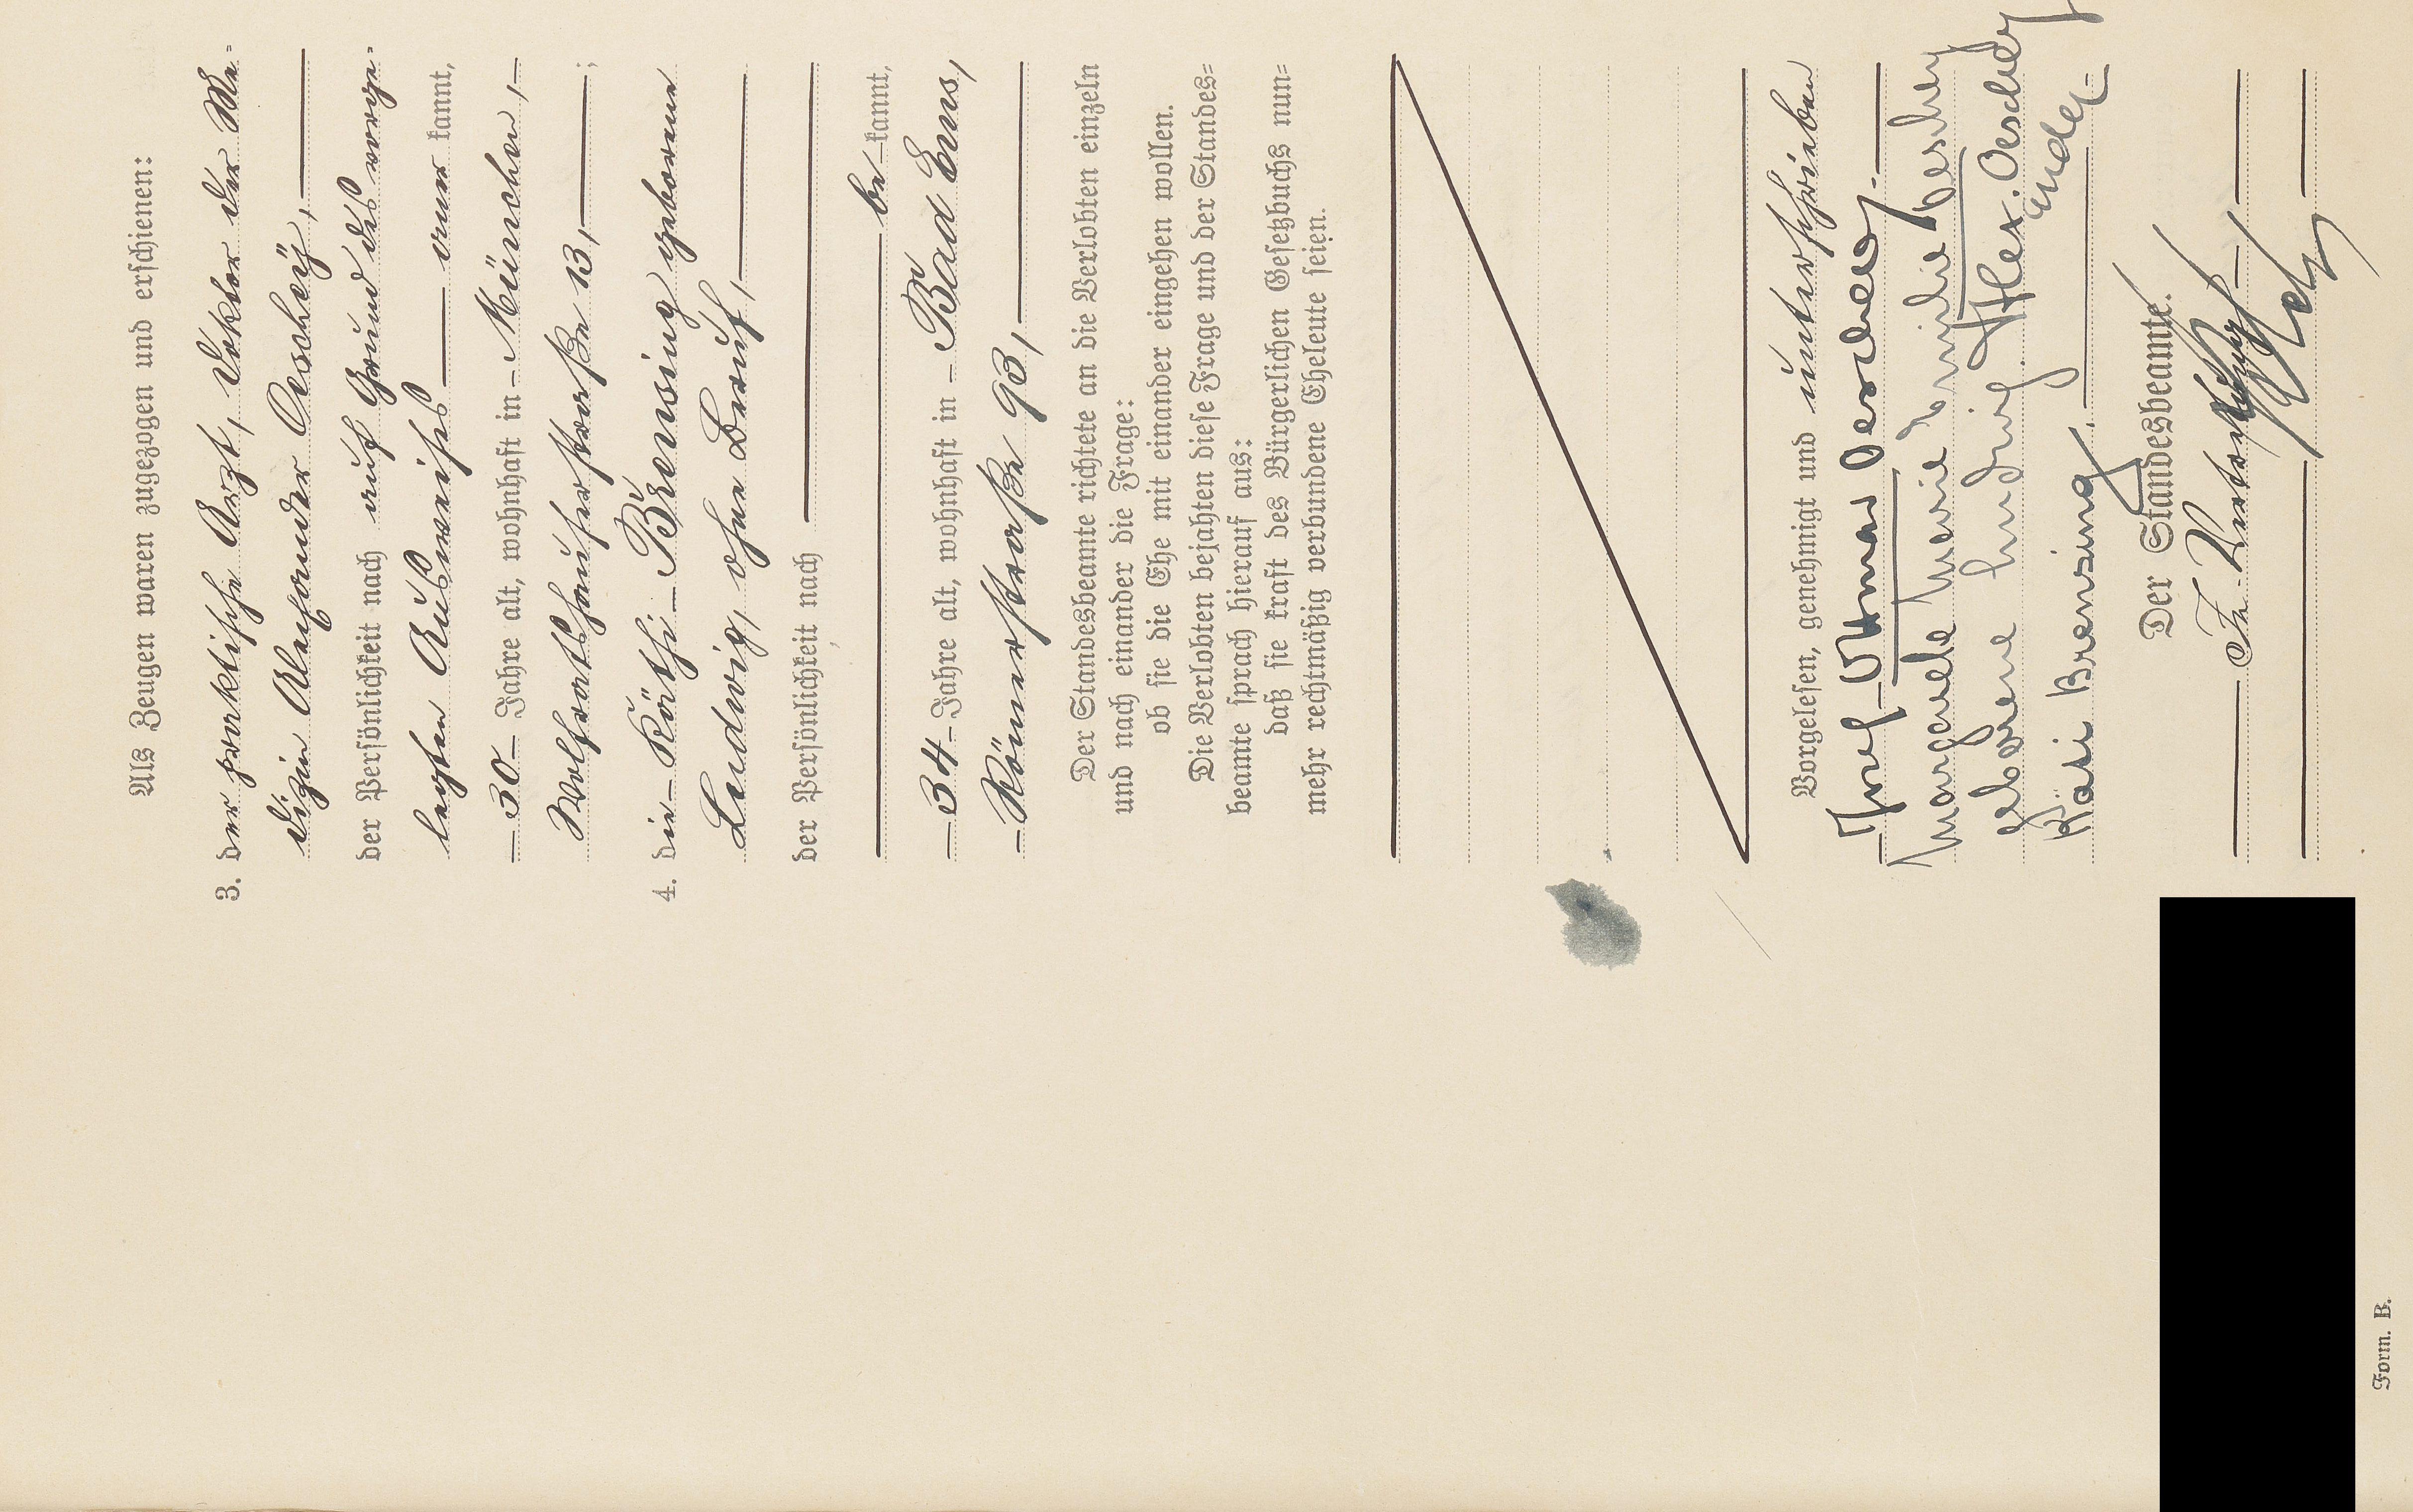 Als Zeugen waren zugezogen und erschienen:
3. der praktische Arzt, Doktor der Me-
dizin Alexander Oeschey,
der Persönlichkeit nach auf Grund des vorge-
legten Ausweises aner kannt,
30 Jahre alt, wohnhaft in München,
Wolfratshauserstraße 13, ;
4. die Käthi Brensing geborene
Ludwig, ohne Beruf,
der Persönlichkeit nach
be kannt,
34 Jahre alt, wohnhaft in Bad Ems,
Römerstraße 93,
Der Standesbeamte richtete an die Verlobten einzeln
und nach einander die Frage:
ob sie die Ehe mit einander eingehen wollen.
Die Verlobten bejahten diese Frage und der Standes=
beamte sprach hierauf aus:
daß sie kraft des Bürgerlichen Gesetzbuchs nun=
mehr rechtmäßig verbundene Eheleute seien.
Vorgelesen, genehmigt und unterschrieben
Josef Ottmar Oeschey.
Margarete Marie Emilie Oeschey
geborene Ludwig. Alex. Oeschey
Käti Brensing.
Der Standesbeamte.
In Vertretung
Form. B.